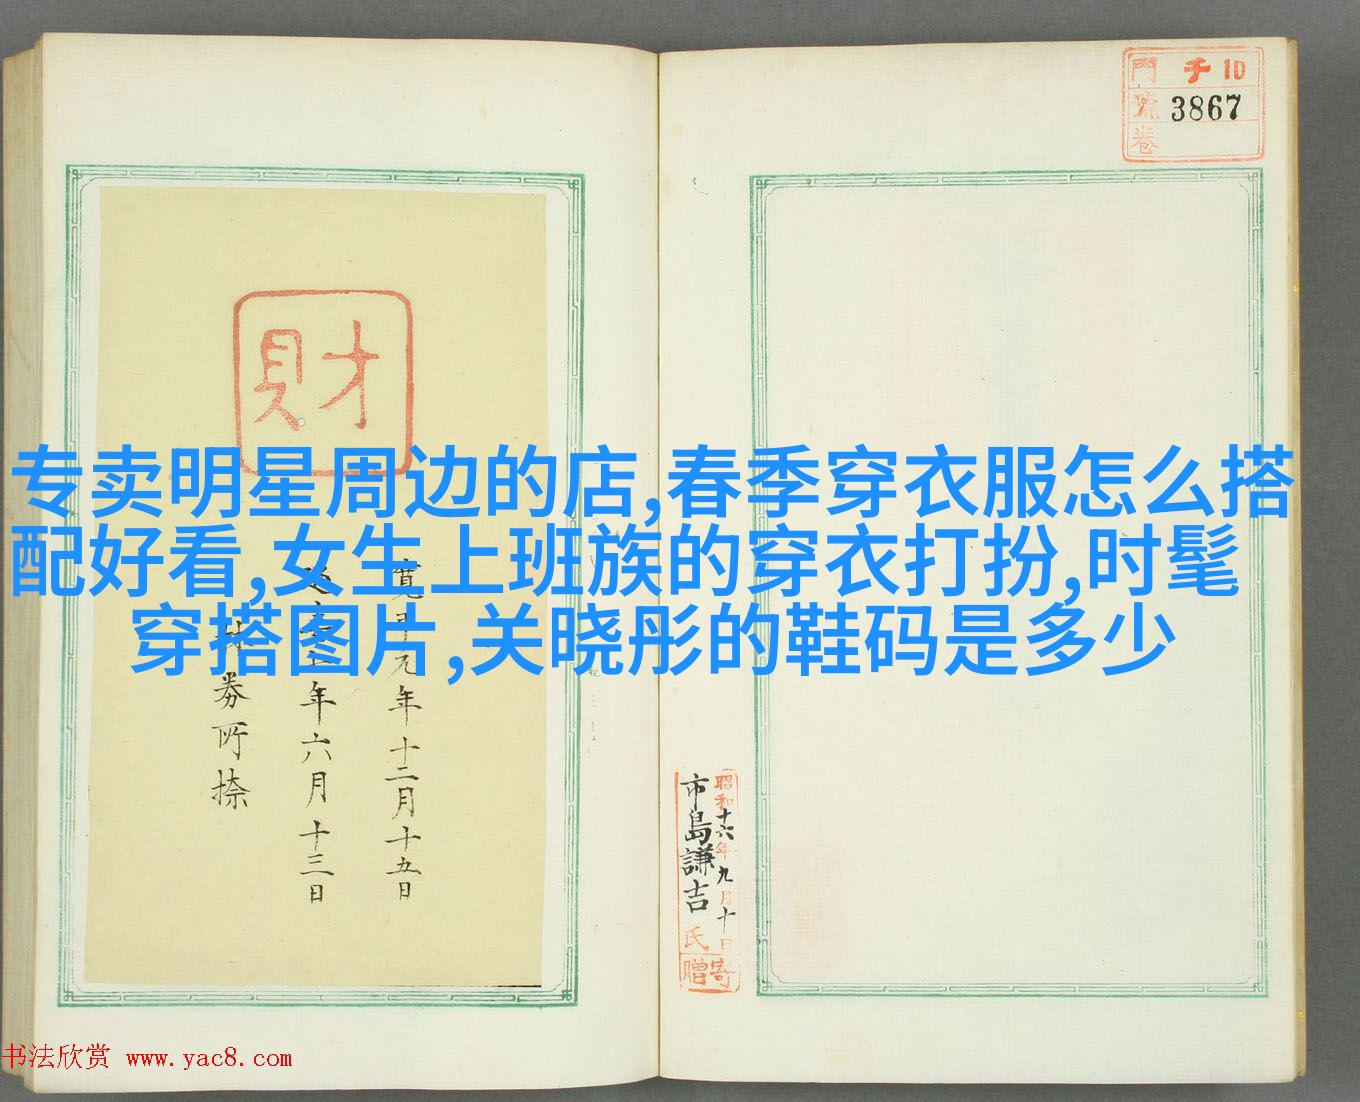 門 千10
號 3867
卷
財
专卖明星周边的店,春季穿衣服怎么搭
配好看,女生上班族的穿衣打扮,时髦
穿搭图片,关晓彤的鞋码是多少
年十二月十五日
年六月十三日
券所捺
昭和十六年九月十日
市島謙吉氏
寄贈
书法欣赏 www.yac8.com